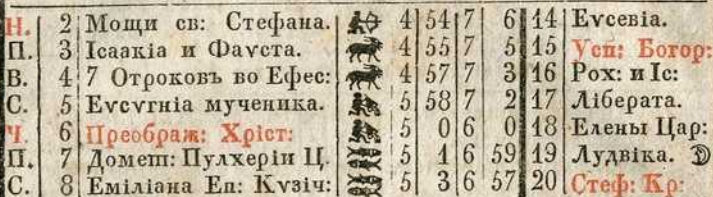 Н. 2 Мощи св: Стефана. 4 54 7 6 14 Еѵсевіа.
П. 3 Ісаакіа и Фаѵста. 4 55 7 5 15 Усп: Богор:
В. 4 7 Отроковъ во Ефес: 4 57 7 3 16 Рох: и Іс:
С. 5 Еѵсѵгніа мученика. 5 58 7 2 17 Ліберата.
Ч. 6 Преображ: Хріст: 5 0 6 0 18 Елены Цар:
П. 7 Домет: Пулхеріи Ц. 5 1 6 59 19 Лудвіка. ☽
С. 8 Еміліана Еп: Кѵзіч: 5 3 6 57 20 Стеф: Кр: